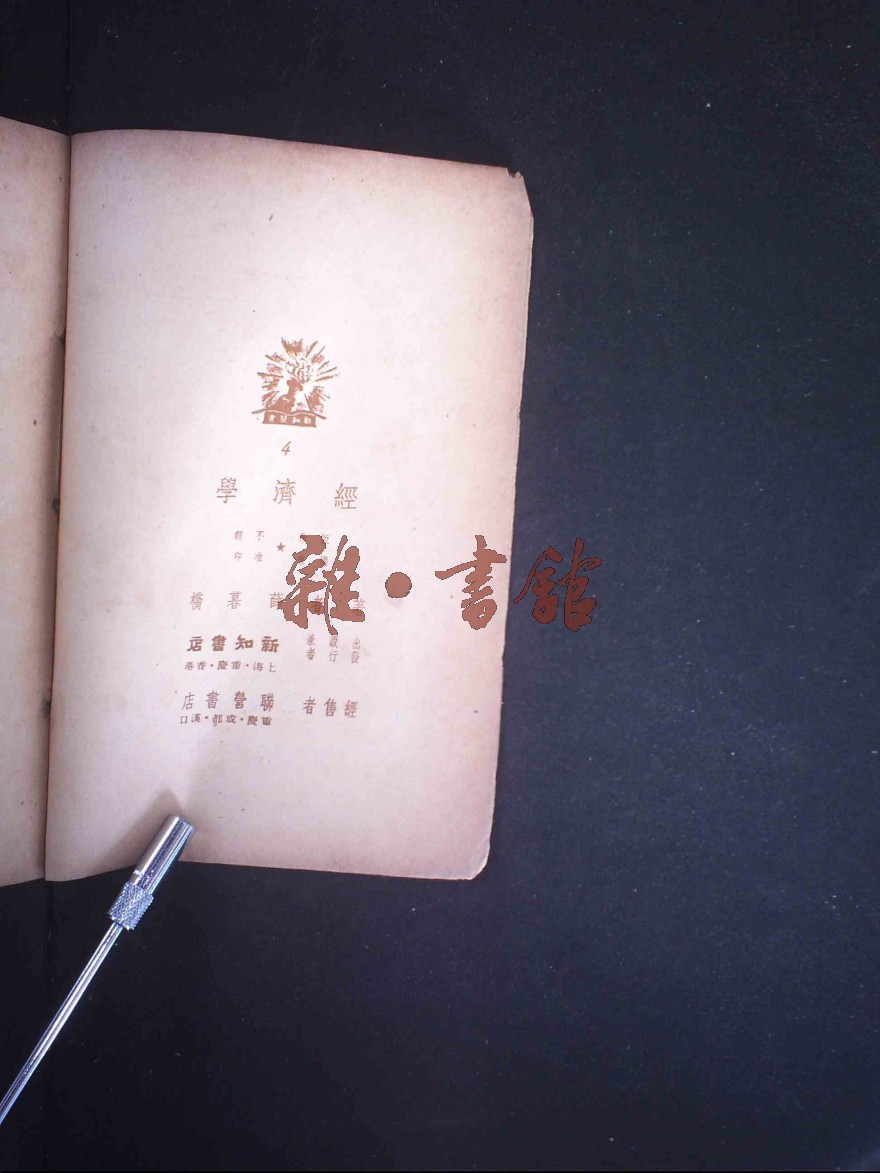 4
經濟學
不准
翻印
★
薛暮橋
出發
兼
行者
新知書店
上海·重慶·香港
經售者 聯營書店
重慶·成都·漢口
雜·書館